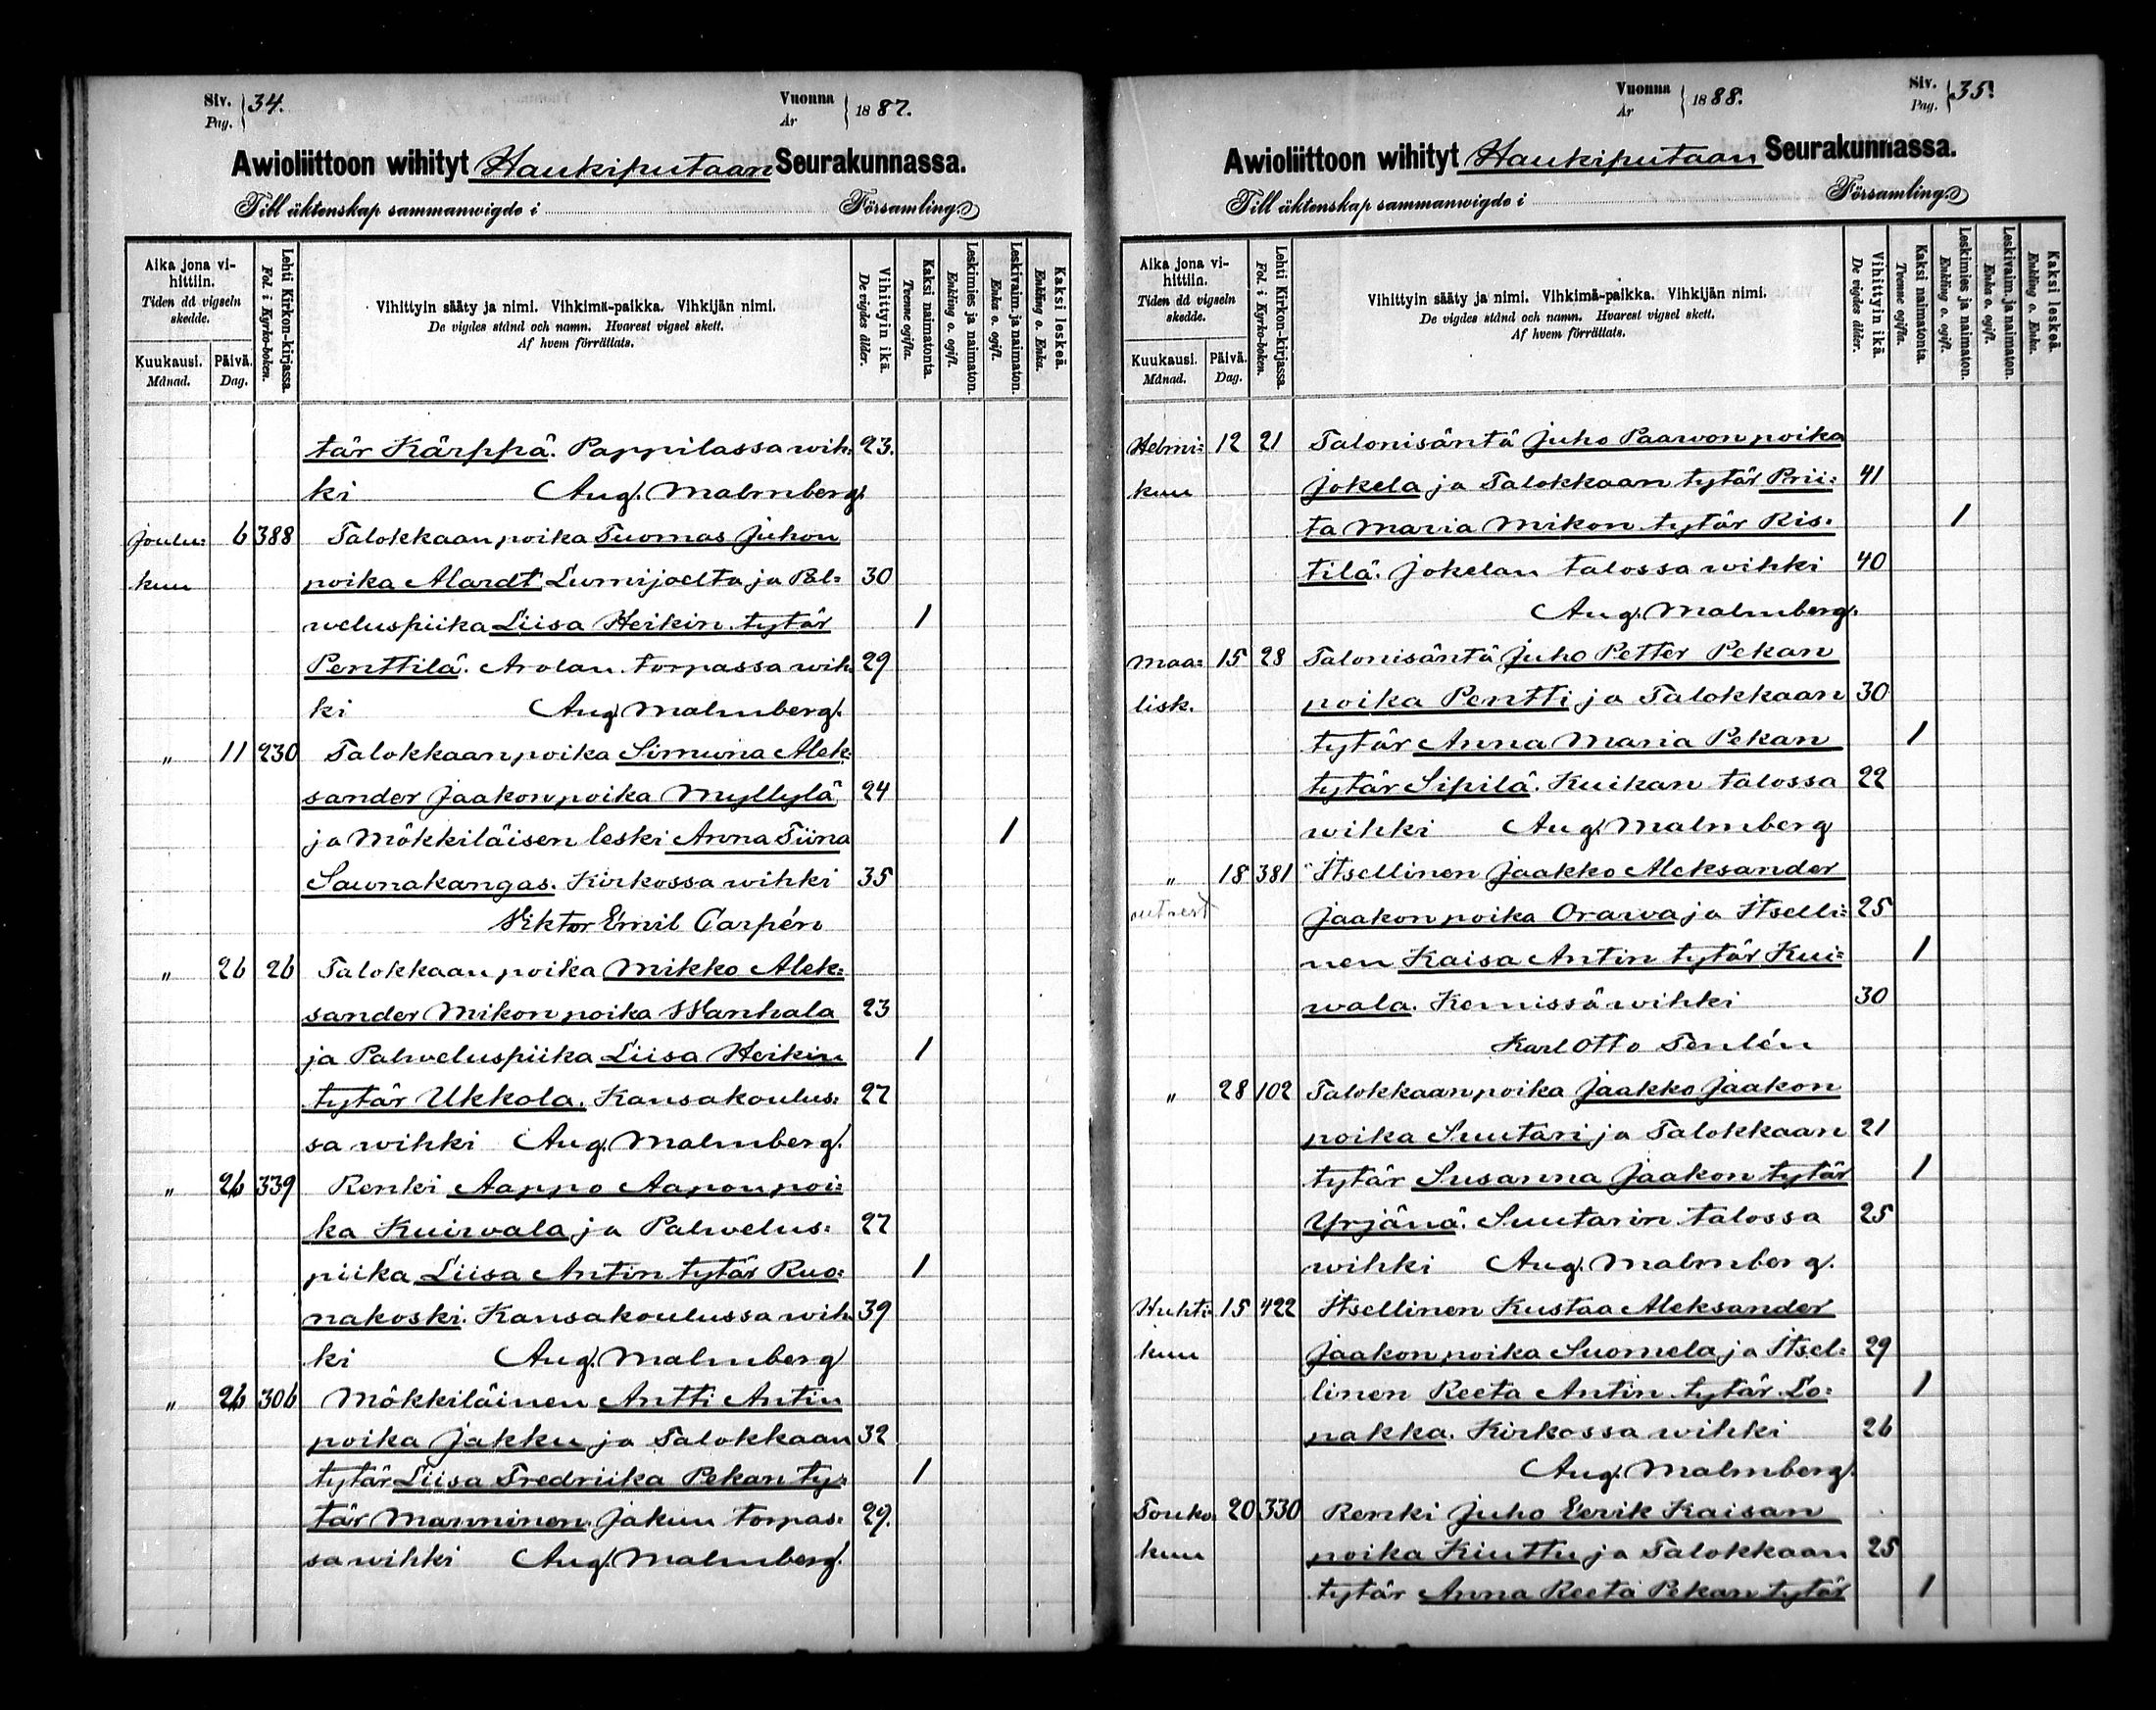 Siv. Pag. 34.
Vuonna År 1887.
Awioliittoon wihityt Haukiputaan Seurakunnassa.
Till äktenskap sammanwigde i Församling.
Aika jona vihittiin. Tiden då vigseln skedde.
Kuukausi. Månad.
Päivä. Dag.
Lehti Kirkon-kirjassa. Fol. i Kyrko-boken.
Vihittyin sääty ja nimi. Vihkimä-paikka. Vihkijän nimi.
De vigdes stånd och namn. Hvarest vigsel skett.
Af hvem förrättats.
Vihittyin ikä. De vigdes ålder.
Kaksi naimatonta. Tvenne ogifta.
Leskimies ja naimaton. Enkling o. ogift.
Leskivaim. ja naimaton. Enka o. ogift.
Kaksi leskeä. Enkling o. Enka.
tär Kärppä. Pappilassa wih: 23.
ki Aug. Malmberg.
Joulu: 6 388 Talokkaan poika Tuomas Juhon
kuu poika Alardt Lumijoelta ja Pal: 30
weluspiika Liisa Heikin tytär 1
Penttilä. Arolan torpassa wih: 29
ki Aug. Malmberg.
" 11 230 Talokkaan poika Simuna Alek:
sander Jaakon poika Myllylä 24
ja Mökkiläisen leski Anna Tiina 1
Saunakangas. Kirkossa wihki 35
Wiktor Emil Carpén
" 26 26 Talokkaan poika Mikko Alek:
sander Mikon poika Wanhala 23
ja Palweluspiika Liisa Heikin 1
tytär Ukkola. Kansakoulus: 27
sa wihki Aug. Malmberg.
" 26 339 Renki Aappo Aapon poi:
ka Kuiwala ja Palwelus: 27
piika Liisa Antin tytär Ruo: 1
nakoski. Kansakoulussa wih: 39
ki Aug. Malmberg
" 26 306 Mökkiläinen Antti Antin
poika Jakku ja Talokkaan 32
tytär Liisa Fredriika Pekan ty: 1
tär Manninen. Jakun torpas: 29.
sa wihki Aug. Malmberg.
Vuonna År 1888.
Siv. Pag. 35.
Awioliittoon wihityt Haukiputaan Seurakunnassa.
Till äktenskap sammanwigde i Församling.
Aika jona vihittiin. Tiden då vigseln skedde.
Kuukausi. Månad.
Päivä. Dag.
Lehti Kirkon-kirjassa. Fol. i Kyrko-boken.
Vihittyin sääty ja nimi. Vihkimä-paikka. Vihkijän nimi.
De vigdes stånd och namn. Hvarest vigsel skett.
Af hvem förrättats.
Vihittyin ikä. De vigdes ålder.
Kaksi naimatonta. Tvenne ogifta.
Leskimies ja naimaton. Enkling o. ogift.
Leskivaim. ja naimaton. Enka o. ogift.
Kaksi leskeä. Enkling o. Enka.
Helmi: 12 21 Talonisäntä Juho Paawon poika
kuu Jokela ja Talokkaan tytär Prii: 41
ta Maria Mikon tytär Ris: 1
tilä. Jokelan talossa wihki 40
Aug. Malmberg.
Maa: 15 28 Talonisäntä Juho Petter Pekan
lisk. poika Pentti ja Talokkaan 30
tytär Anna Maria Pekan 1
tytär Sipilä. Kuikan talossa 22
wihki Aug. Malmberg
" 18 381 Itsellinen Jaakko Aleksander
Jaakon poika Orawa ja Itselli: 25
nen Kaisa Antin tytär Kui: 1
wala. Kemissä wihki 30
Karl Otto Tenlén
" 28 102 Talokkaan poika Jaakko Jaakon
poika Suutari ja Talokkaan 21
tytär Susanna Jaakon tytär 1
Yrjänä. Suutarin talossa 25
wihki Aug. Malmberg.
Huhti: 15 422 Itsellinen Kustaa Aleksander
kuu Jaakon poika Suomela ja Itsel: 29
linen Reeta Antin tytär Lo: 1
pakka. Kirkossa wihki 26
Aug. Malmberg.
Touko: 20 330 Renki Juho Eerik Kaisan
kuu poika Kiuttu ja Talokkaan 25
tytär Anna Reeta Pekan tytär 1